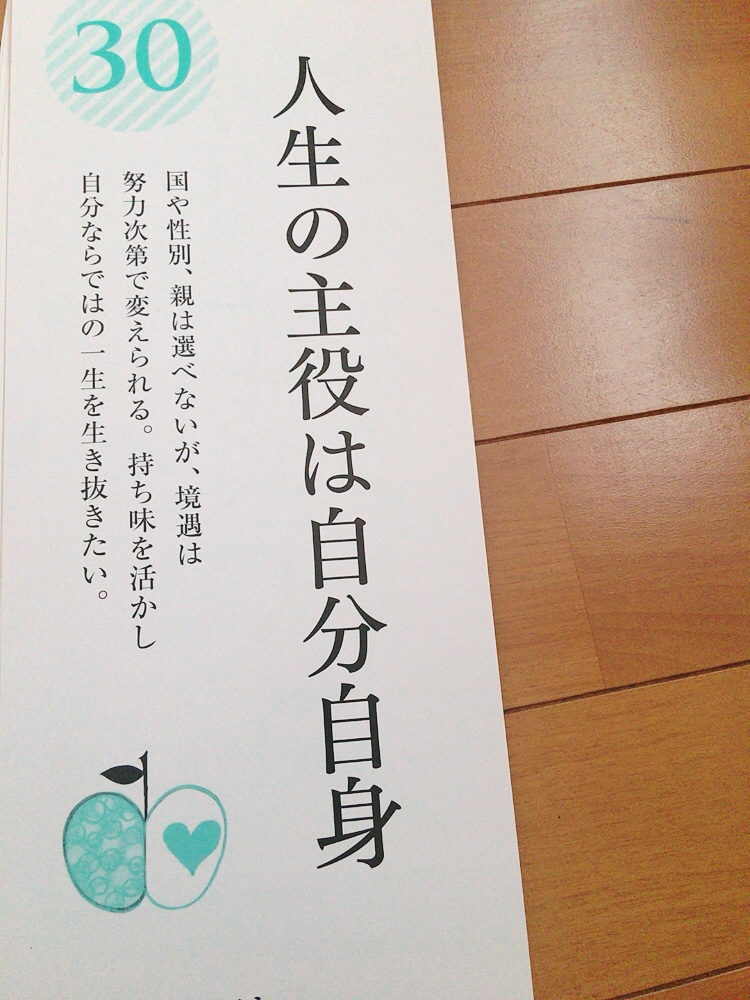 30
人生の主役は自分自身
国や性別、親は選べないが、境遇は
努力次第で変えられる。持ち味を活かし
自分ならではの一生を生き抜きたい。